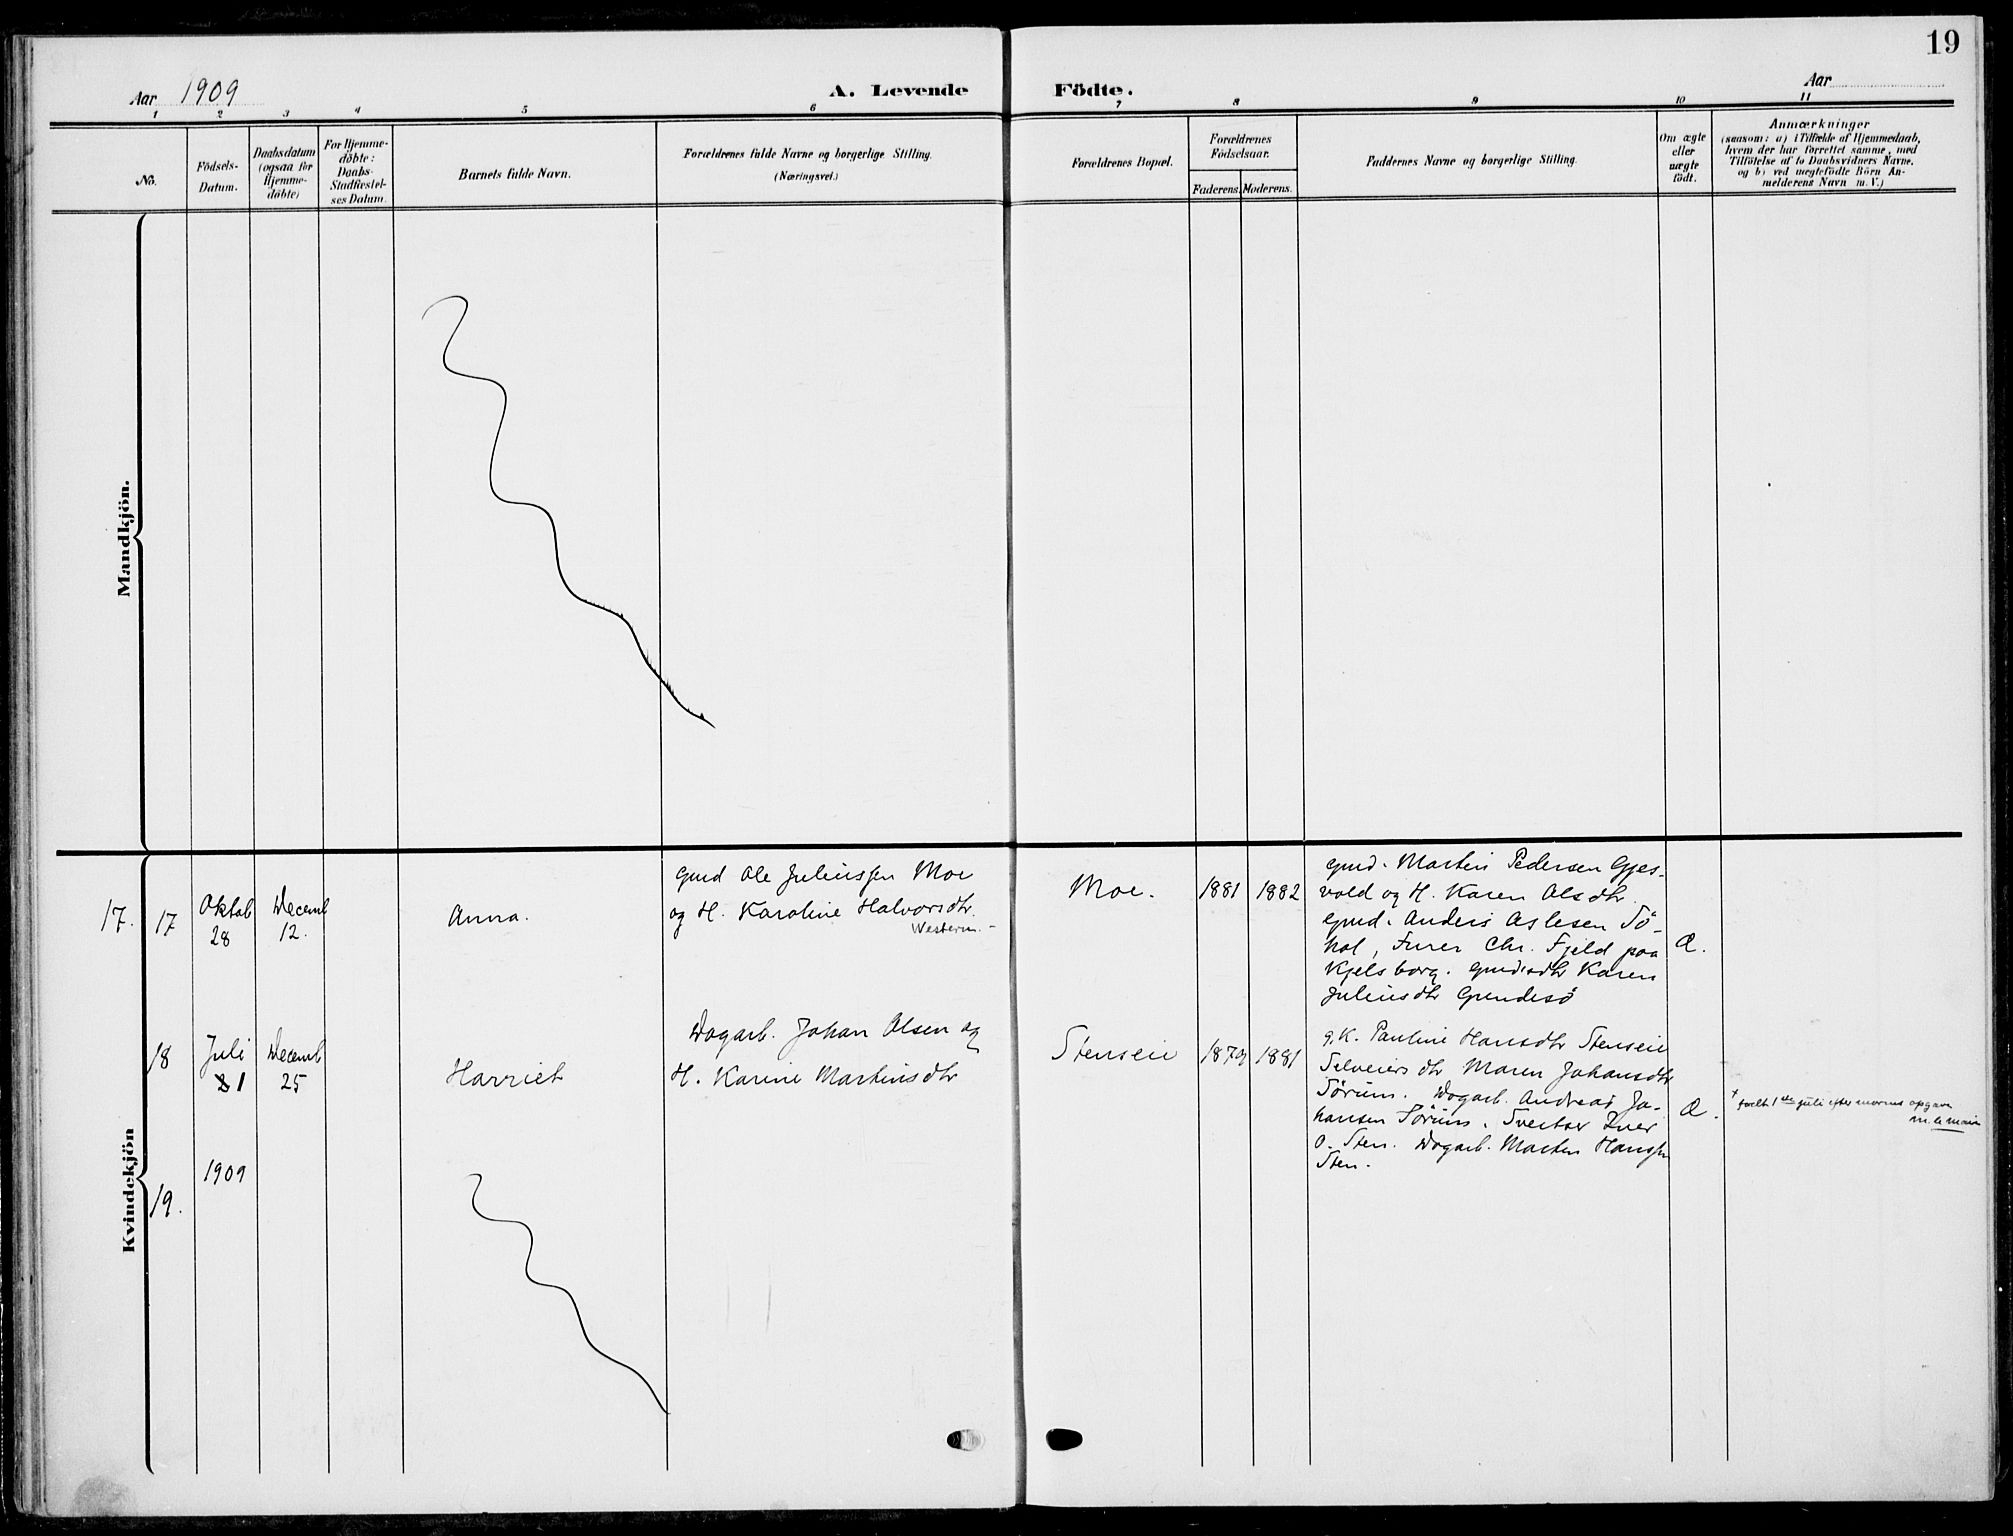 19
Aar 1909
A. Levende Födte.
Aar
1 2 3 4 5 6 7 8 9 10 11
No.
Födsels-
Datum.
Daabsdatum
(ogsaa for
Hjemme-
döbte)
For Hjemme-
döbte:
Daabs-
Stadfæstel-
ses Datum.
Barnets fulde Navn.
Forældrenes fulde Navne og borgerlige Stilling.
(Næringsvei.)
Forældrenes Bopæl.
Forældrenes
Födselsaar.
Faderens. Moderens.
Faddernes Navne og borgerlige Stilling.
Om ægte
eller
uægte
födt.
Anmærkninger
(saasom: a) i Tilfælde af Hjemmedaab,
hvem der har forrettet samme, med
Tilföielse af to Daabsvidners Navne,
og b) ved uægtefödte Börn An-
melderens Navn m. V.)
Mandkjön.
Kvindekjön
17. 17
Oktob
28
Decemb
12.
Anna.
Gmd Ole Juliussen Moe
og H. Karoline Halvorsdtr.
Western.
Moe.
1881 1882
Gmd. Martin Pedersen Gjes-
vold og H. Karen Olsdtr.
Gmd. Anders Aslesen Sö-
hol, Furer Chr. Fjeld paa
Kjelsborg. Gmdsdtr Karen
Juliusdtr Grindesö
Æ.
18
Juli
1
Decemb
25
Harriet
Dagarb. Johan Olsen og
H. Karine Martinsdtr
Stenseie
1879 1881
g.K. Pauline Hansdtr Stenseie
Selveiersdtr Maren Johansdtr
Sörum. Dagarb. Andreas Jo-
hansen Sörum. Sveitser Iver
O. Sten. Dagarb. Morten Hanssen
Sten.
Æ.
+ født 1ste juli efter morens opgave
1909
19.